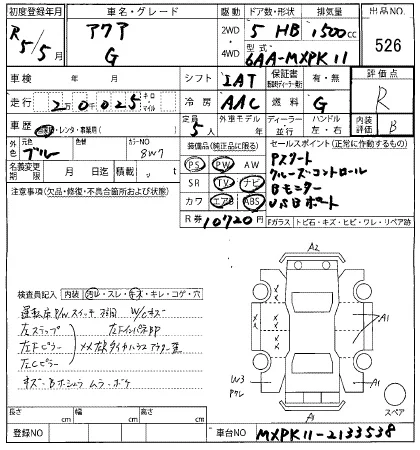 初度登録年月 車名・グレード 駆動 ドア数・形状 排気量 出品NO.
R5/5月 アクア G 2WD 4WD 5 HB 1500cc 526
型式 6AA-MXPK11
車検 年 月 シフト IAT 保証書 有・無 評価点
走行 2万0025 キロ・マイル 冷房 AAC 燃料 G R
車歴 レンタ・事業用 定員 5人 外車モデル 年 ディーラー 並行 ハンドル 左・右 内装評価 B
外色 元色 ブルー 色替 カラーNO 8W7
装備品(純正品に限る) セールスポイント(正常に作動するもの)
PS PW AW Pスタート
名義変更期限 月 日迄 積載 SR TV ナビ クルーズコントロール
カワ エアB ABS Bモニター
USBポート
注意事項(欠品・修復・不具合箇所および状態)
R券 10720円 Fガラス トビ石・キズ・ヒビ・ワレ・リペア跡
A2
検査員記入 内装 汚レ・スレ・キズ・キレ・コゲ・穴
運転席P/Wスイッチ W/Cキズ
左ステップ 左Fインパネ
左Fピラー
左Cピラー
キズ・Bホシュラ ムラ・ボケ
A1
W3
アクレ
A1
A1
スペア
長さ cm 幅 cm 高さ cm
登録NO 車台NO MXPK11-2133538